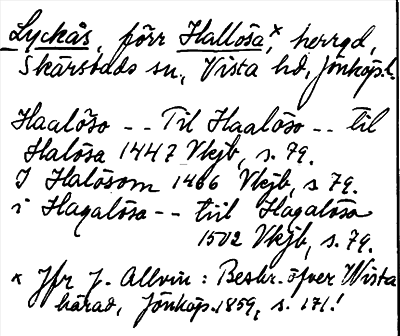 Lyckås, förr Hallösa,× herrgd,
Skärstads sn, Vista hd, Jönköp.l.
Haalöso -- Til Haalöso -- til
Halösa 1447 Vkjb, s. 79.
I Halösom 1466 Vkjb, s 79.
i Hagalösa -- till Hagalösa
1502 Vkjb, s. 79.
× Jfr J. Allvin: Beskr. öfver Wista
härad, Jönköp. 1859, s. 171!